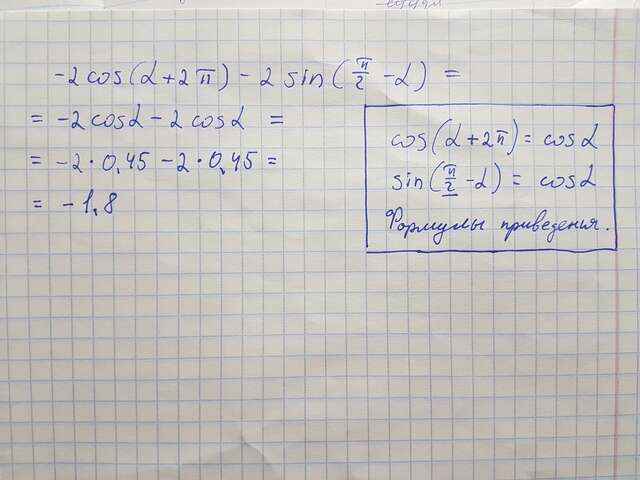 -2cos(α+2π)-2sin(π/2-α)=
= -2cosα-2cosα =
= -2·0,45-2·0,45=
= -1,8
cos(α+2π)=cosα
sin(π/2-α)= cosα
Формулы приведения.